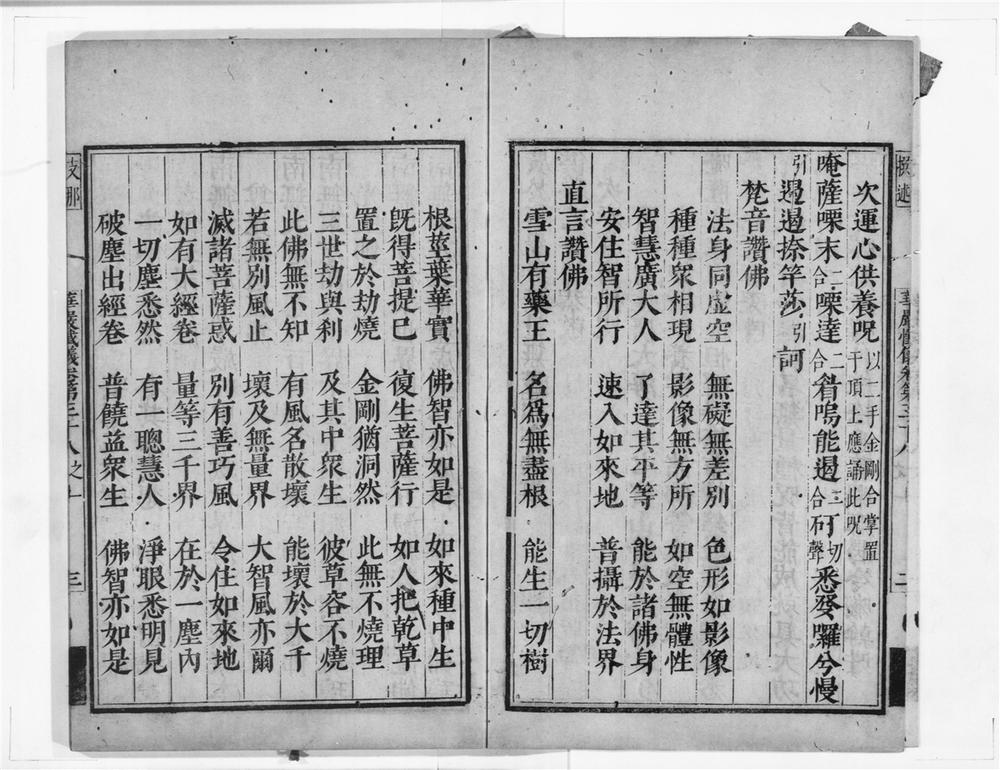 次運心供養呪以二手金剛合掌置于頂上應誦此呪
唵薩嚛末二合嚛達二合
引遏遏捺竿莎引訶
梵音讚佛
法身同虛空 無礙無差別 色形如影像
種種眾相現 影像無方所 如空無體性
智慧廣大人 了達其平等 能於諸佛身
安住智所行 速入如來地 普攝於法界
直言讚佛
雪山有藥王 名為無盡根 能生一切樹
根莖葉華實 佛智亦如是 如來種中生
既得菩提已 復生菩薩行 如人把乾草
置之於劫燒 金剛猶洞然 此無不燒理
三世劫與利 及其中眾生 彼草容不燒
此佛無不知 有風名散壞 能壞於大千
若無別風止 壞及無量界 大智風亦爾
滅諸菩薩惑 別有善巧風 令住如來地
如有大經卷 量等三千界 在於一塵內
一切塵悉然 有一聰慧人 淨眼悉明見
破塵出經卷 普饒益眾生 佛智亦如是
支那
華嚴懺儀卷第三十八之一
三